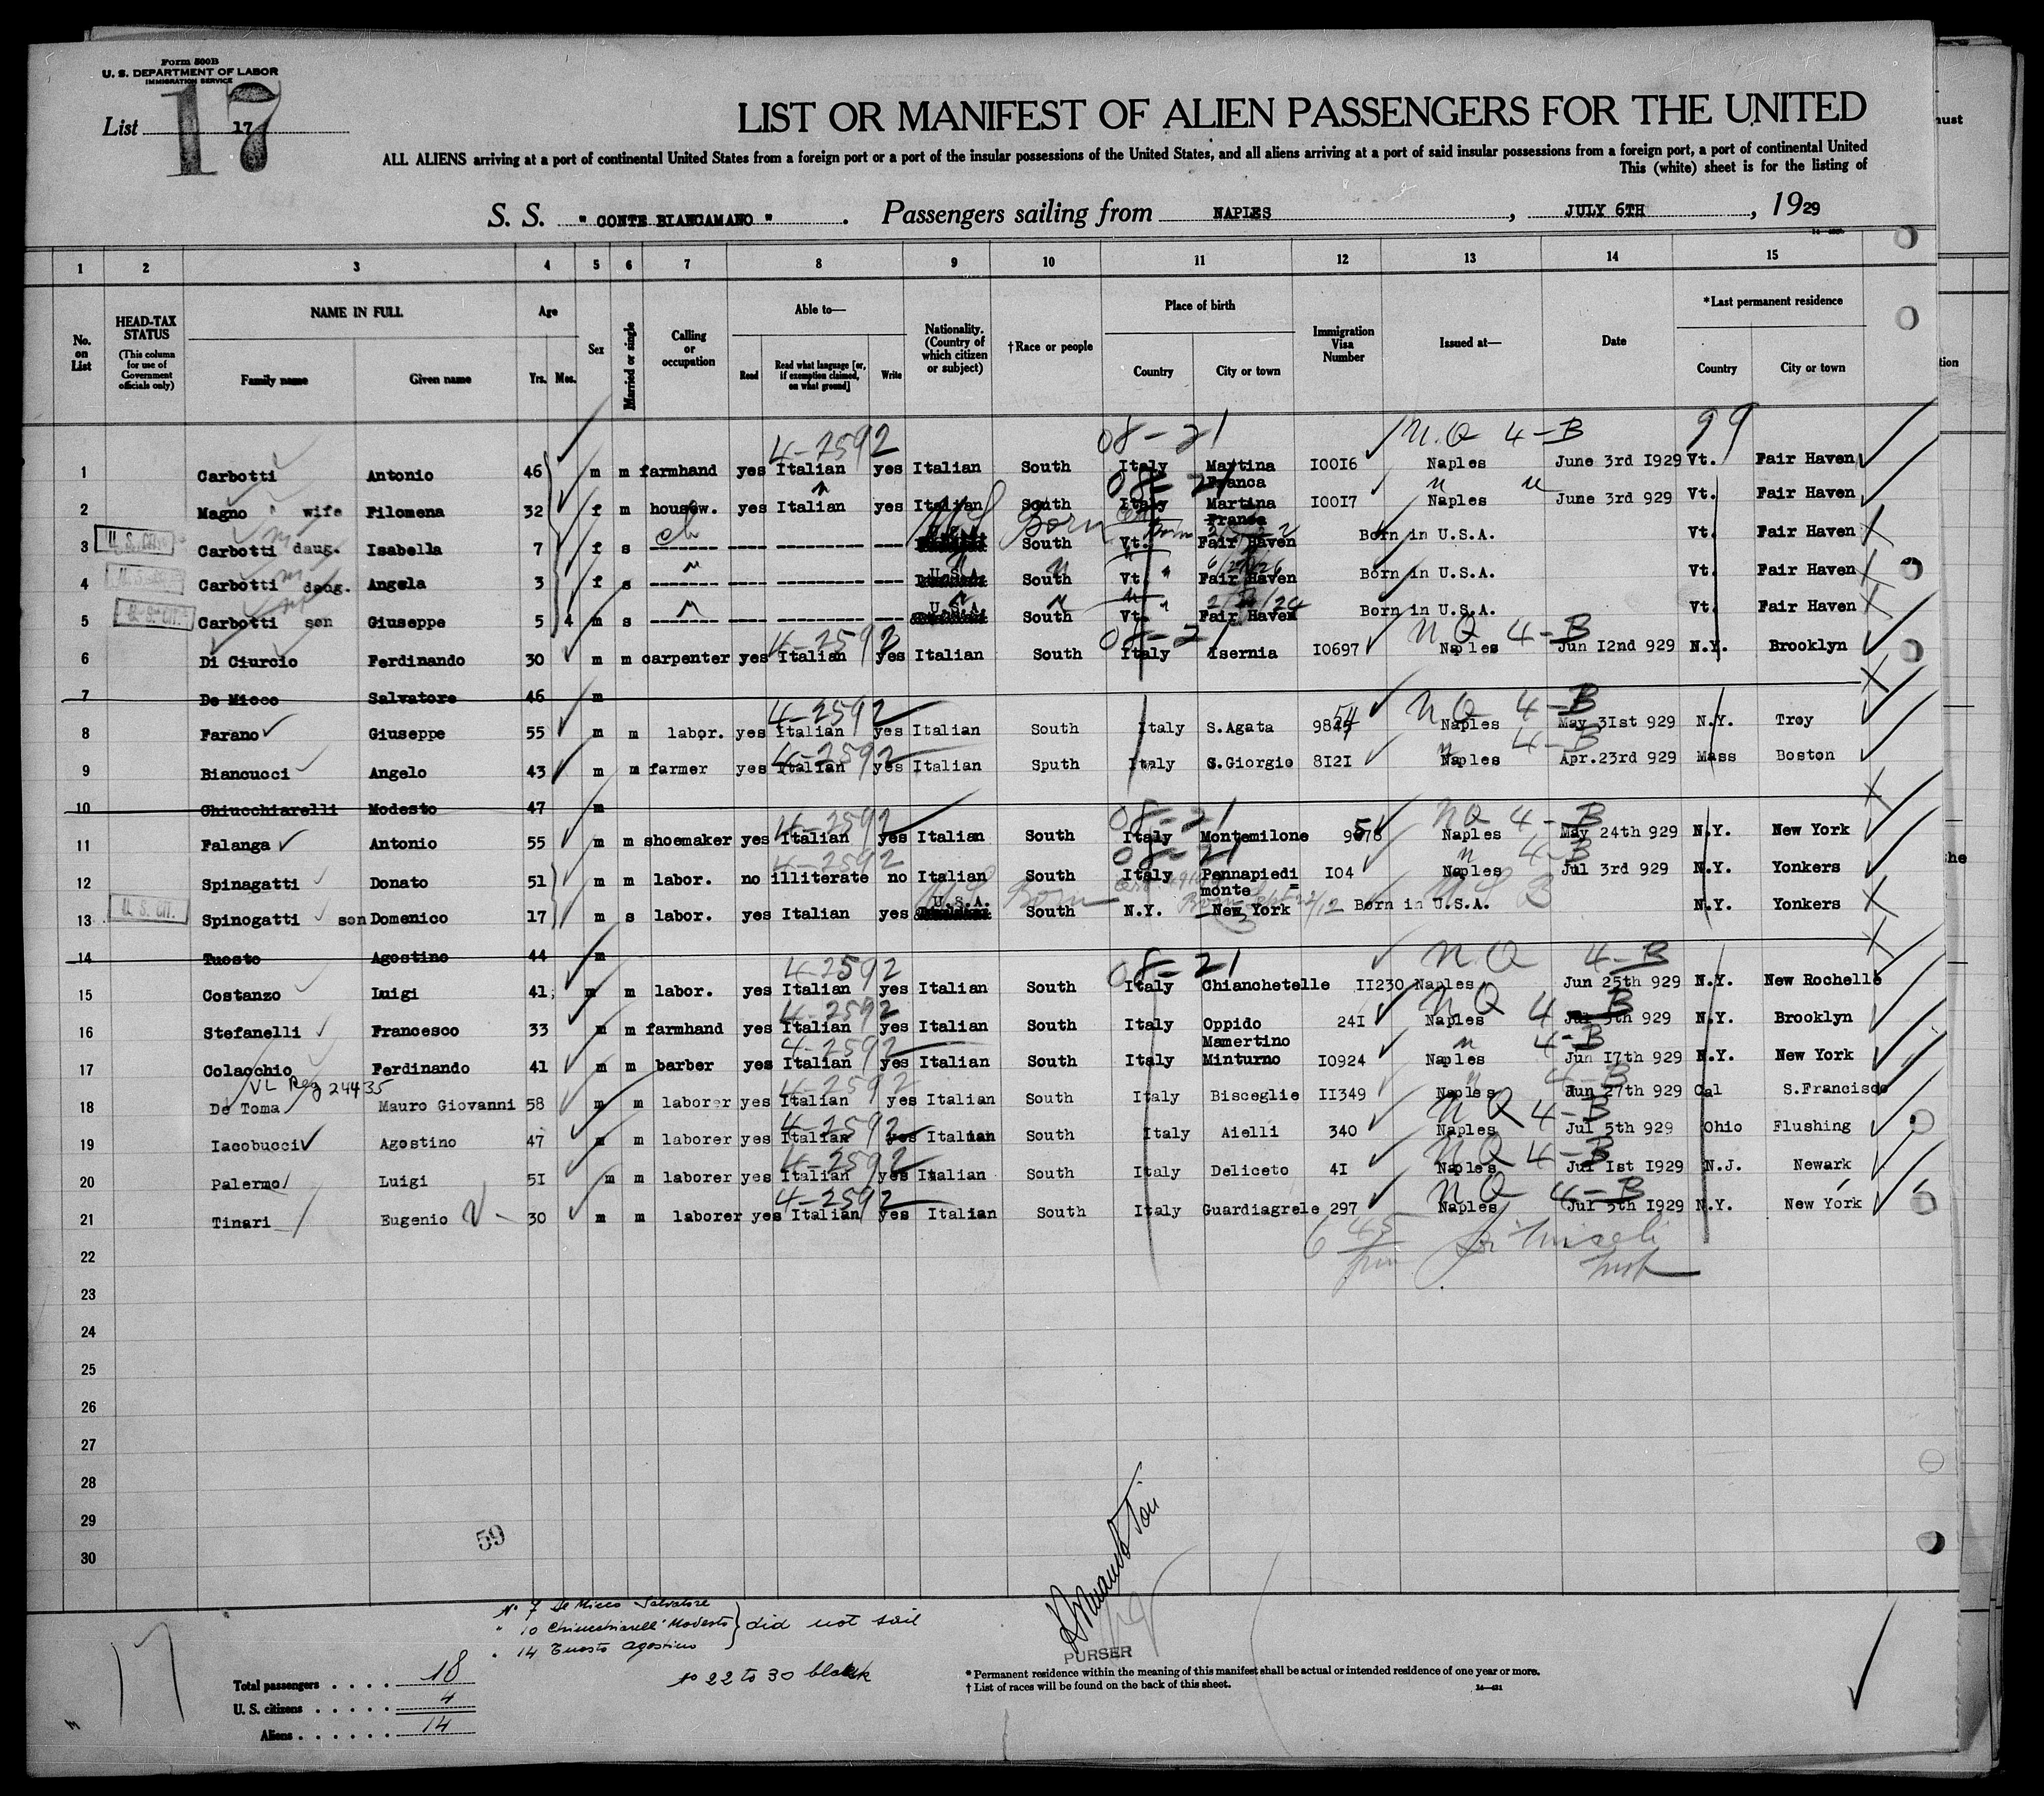 Form 500B
U. S. DEPARTMENT OF LABOR
IMMIGRATION SERVICE
17
List 17
LIST OR MANIFEST OF ALIEN PASSENGERS FOR THE UNITED
ALL ALIENS arriving at a port of continental United States from a foreign port or a port of the insular possessions of the United States, and all aliens arriving at a port of said insular possessions from a foreign port, a port of continental United
This (white) sheet is for the listing of
S. S. "CONTE BIANCAMANO". Passengers sailing from NAPLES, JULY 6TH, 1929
1 2 3 4 5 6 7 8 9 10 11 12 13 14 15
No. on List
HEAD-TAX STATUS (This column for use of Government officials only)
NAME IN FULL Family name Given name
Age Yrs. Mos.
Sex
Married or single
Calling or occupation
Able to— Read Read what language [or, if exemption claimed, on what ground] Write
Nationality. (Country of which citizen or subject)
†Race or people
Place of birth Country City or town
Immigration Visa Number
Issued at—
Date
*Last permanent residence Country City or town
4-2592 08-21 N.Q 4-B 99
1 Carbotti Antonio 46 m m farmhand yes Italian yes Italian South Italy Martina Franca I00I6 Naples June 3rd I929 Vt. Fair Haven
08-21
2 Magno wife Filomena 32 f m housew. yes Italian yes Italian South Italy Martina Franca I00I7 Naples June 3rd 929 Vt. Fair Haven
3 U. S. CIT. Carbotti daug. Isabella 7 f s ch U.S.A. Born South Vt. Fair Haven Born in U.S.A. Vt. Fair Haven
4 U. S. CIT. Carbotti daug. Angela 3 f s U.S.A. South Vt. Fair Haven Born in U.S.A. Vt. Fair Haven
5 U. S. CIT. Carbotti son Giuseppe 5 4 m s U.S.A. South Vt. Fair Haven Born in U.S.A. Vt. Fair Haven
4-2592 08-21 NQ 4-B
6 Di Ciurcio Ferdinando 30 m m carpenter yes Italian yes Italian South Italy Isernia I0697 Naples Jun I2nd 929 N.Y. Brooklyn
7 De Micco Salvatore 46 m
4-2592 NQ 4-B
8 Farano Giuseppe 55 m m labor. yes Italian yes Italian South Italy S.Agata Naples May 3Ist 929 N.Y. Troy
4-2592 4-B
9 Biancucci Angelo 43 m m farmer yes Italian yes Italian Sputh Italy S.Giorgio 8I2I Naples Apr.23rd 929 Mass Boston
10 Chiucchiarelli Modesto 47 m
4-2592 08-21 NQ 4-B
11 Falanga Antonio 55 m m shoemaker yes Italian yes Italian South Italy Montemilone Naples May 24th 929 N.Y. New York
4-2592 08-21 4-B
12 Spinagatti Donato 51 m m labor. no illiterate no Italian South Italy Pennapiedi= monte I04 Naples Jul 3rd 929 N.Y. Yonkers
13 U. S. CIT. Spinogatti son Domenico 17 m s labor. yes Italian yes U.S.A. Born South N.Y. New York Born in U.S.A. N.Y. Yonkers
14 Tuosto Agostino 44 m
4-2592 08-21 N.Q 4-B
15 Costanzo Luigi 41 m m labor. yes Italian yes Italian South Italy Chianchetelle II230 Naples Jun 25th 929 N.Y. New Rochelle
4-2592 NQ 4 B
16 Stefanelli Francesco 33 m m farmhand yes Italian yes Italian South Italy Oppido Mamertino 24I Naples Jul 5th 929 N.Y. Brooklyn
4-2592 4-B
17 Colacchio Ferdinando 41 m m barber yes Italian yes Italian South Italy Minturno I0924 Naples Jun I7th 929 N.Y. New York
VL Reg 24435 4-2592 4-B
18 De Toma Mauro Giovanni 58 m m laborer yes Italian yes Italian South Italy Bisceglie II349 Naples Jun 27th 929 Cal S.Francisco
4-2592 NQ 4-B
19 Iacobucci Agostino 47 m m laborer yes Italian yes Italian South Italy Aielli 340 Naples Jul 5th 929 Ohio Flushing
4-2592 NQ 4-B
20 Palermo Luigi 5I m m laborer yes Italian yes Italian South Italy Deliceto 4I Naples Jul Ist I929 N.J. Newark
4-2592 NQ 4-B
21 Tinari Eugenio 30 m m laborer yes Italian yes Italian South Italy Guardiagrele 297 Naples Jul 5th I929 N.Y. New York
22
23
24
25
26
27
28
29
30
59
No 7 De Micco Salvatore
" 10 Chiucchiarelli Modesto } did not sail
" 14 Tuosto Agostino
No 22 to 30 blank
PURSER
Total passengers . . . . 18
U. S. citizens . . . . . 4
Aliens . . . . . . 14
17
* Permanent residence within the meaning of this manifest shall be actual or intended residence of one year or more.
† List of races will be found on the back of this sheet.